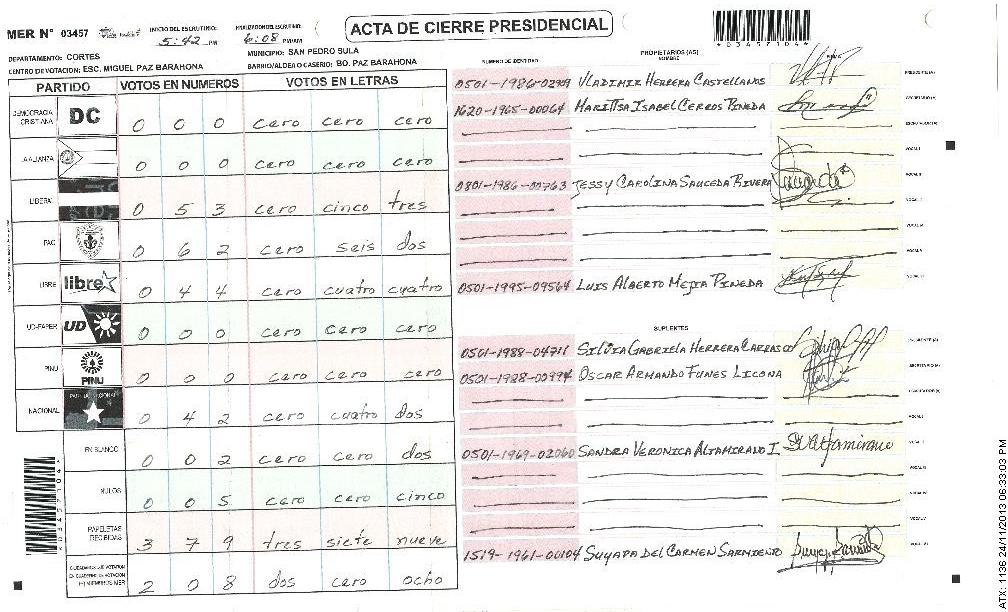 MER N° 03457
INICIO DEL ESCRUTINIO:
5:42 PM
FINALIZACION DEL ESCRUTINIO:
6:08 PM/AM
ACTA DE CIERRE PRESIDENCIAL
*03457104*
DEPARTAMENTO: CORTES
MUNICIPIO: SAN PEDRO SULA
CENTRO DE VOTACION: ESC. MIGUEL PAZ BARAHONA
BARRIO/ALDEA O CASERIO: BO. PAZ BARAHONA
PARTIDO VOTOS EN NUMEROS VOTOS EN LETRAS
DEMOCRACIA CRISTIANA DC 0 0 0 cero cero cero
LA ALIANZA 0 0 0 cero cero cero
LIBERAL 0 5 3 cero cinco tres
PAC 0 6 2 cero seis dos
LIBRE libre 0 4 4 cero cuatro cuatro
UD-FAPER UD 0 0 0 cero cero cero
PINU PINU 0 0 0 cero cero cero
NACIONAL 0 4 2 cero cuatro dos
EN BLANCO 0 0 2 cero cero dos
NULOS 0 0 5 cero cero cinco
PAPELETAS RECIBIDAS 3 7 9 tres siete nueve
2 0 8 dos cero ocho
*03457104*
NUMERO DE IDENTIDAD
PROPIETARIOS (AS)
NOMBRE
FIRMA
VLADIMIR HERRERA CASTELLANOS
PRESIDENTE(A)
1620-1965-00064 MARITTSA ISABEL CERROS PINEDA
SECRETARIO (A)
ESCRUTADOR (A)
VOCAL I
0801-1986-00763 JESSY CAROLINA SAUCEDA RIVERA
0501-1995-09564 LUIS ALBERTO MEJIA PINEDA
SUPLENTES
0501-1988-04711 SILVIA GABRIELA HERRERA CARRASCO
PRESIDENTE (A)
0501-1988-00994 OSCAR ARMANDO FUNES LICONA
SECRETARIO (A)
ESCRUTADOR (A)
VOCAL I
0501-1969-02060 SANDRA VERONICA ALTAMIRANO I.
1519-1961-00104 SUYAPA DEL CARMEN SARMIENTO
ATX: 1136 24/11/2013 06:33:03 PM